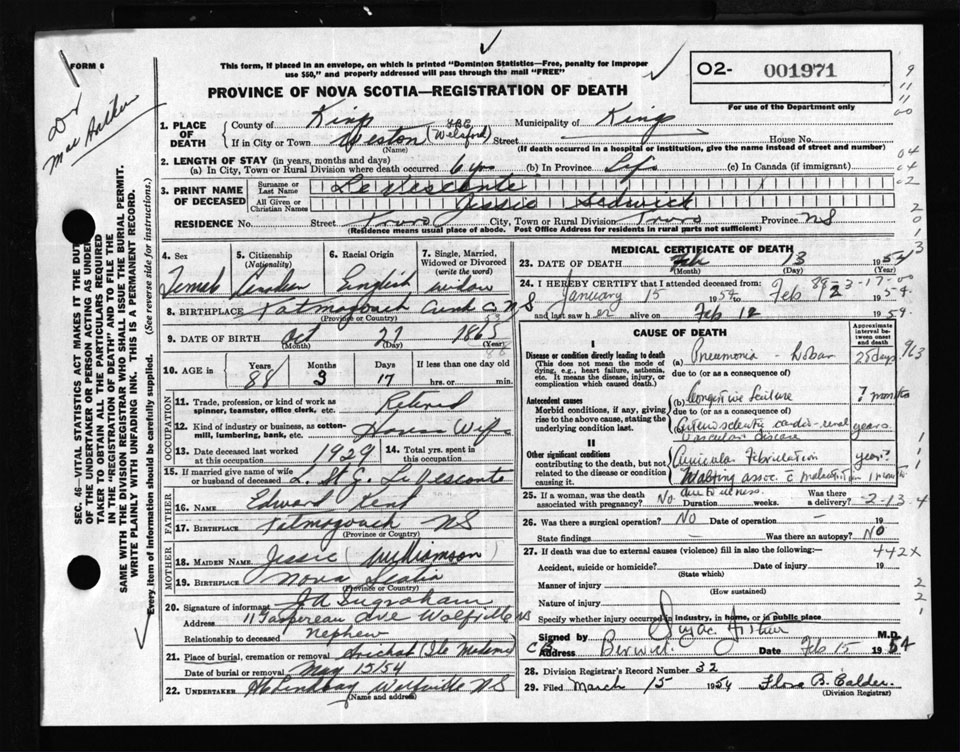 FORM 6
Dr
This form, if placed in an envelope, on which is printed "Dominion Statistics—Free, penalty for improper
use $50," and properly addressed will pass through the mail "FREE"
PROVINCE OF NOVA SCOTIA—REGISTRATION OF DEATH
O2- 001971
For use of the Department only
1. PLACE OF DEATH County of Kings Municipality of Kings
If in City or Town Weston (Welsford) Street House No.
(Name) (If death occurred in a hospital or institution, give the name instead of street and number)
2. LENGTH OF STAY (in years, months and days)
(a) In City, Town or Rural Division where death occurred 6 yrs (b) In Province Life (c) In Canada (if immigrant)
3. PRINT NAME OF DECEASED Surname or Last Name Le Vesconte
All Given or Christian Names Jessie Sedwick
RESIDENCE No. Street Truro City, Town or Rural Division Truro Province NS
(Residence means usual place of abode. Post Office Address for residents in rural parts not sufficient)
4. Sex Female
5. Citizenship (Nationality) Canadian
6. Racial Origin English
7. Single, Married, Widowed or Divorced (write the word) widow
8. BIRTHPLACE NS
(Province or Country)
9. DATE OF BIRTH Oct 27 1865
(Month) (Day) (Year)
10. AGE in Years 88 Months 3 Days 17 If less than one day old hrs. or min.
OCCUPATION
11. Trade, profession, or kind of work as spinner, teamster, office clerk, etc. Retired
12. Kind of industry or business, as cotton-mill, lumbering, bank, etc. House Wife
13. Date deceased last worked at this occupation 1929
14. Total yrs. spent in this occupation
15. If married give name of wife or husband of deceased L. St G. LeVesconte
FATHER
16. NAME Edward Kent
17. BIRTHPLACE NS
(Province or Country)
MOTHER
18. MAIDEN NAME Jessie (Williamson)
19. BIRTHPLACE Nova Scotia
(Province or Country)
20. Signature of informant J A Ingraham
Address 11 Gaspereau Ave Wolfville NS
Relationship to deceased Nephew
21. Place of burial, cremation or removal Arichat (Isle Madame)
Date of burial or removal May 15/54
22. UNDERTAKER Wolfville NS
(Name and address)
MEDICAL CERTIFICATE OF DEATH
23. DATE OF DEATH Feb 13 1954
(Month) (Day) (Year)
24. I HEREBY CERTIFY that I attended deceased from:
January 15 1954 to Feb 12 1954.
and last saw her alive on Feb 12 1954.
CAUSE OF DEATH
Approximate interval between onset and death
I
Disease or condition directly leading to death (This does not mean the mode of dying, e.g., heart failure, asthenia, etc. It means the disease, injury, or complication which caused death.
(a) Pneumonia - Lobar 25 days
due to (or as a consequence of)
Antecedent causes
Morbid conditions, if any, giving rise to the above cause, stating the underlying condition last.
(b) Congestive Failure 7 months
due to (or as a consequence of)
Arteriosclerotic cardio-renal vascular disease years.
II
Other significant conditions contributing to the death, but not related to the disease or condition causing it.
Auricular Fibrillation years?
due to illness. 1 month
25. If a woman, was the death associated with pregnancy? No Duration weeks. Was there a delivery?
26. Was there a surgical operation? NO Date of operation — 19
State findings — Was there an autopsy? NO
27. If death was due to external causes (violence) fill in also the following:—
Accident, suicide or homicide? Date of injury 19
(State which)
Manner of injury
(How sustained)
Nature of injury
Specify whether injury occurred in industry, in home, or in public place
Signed by M.D.
Address Berwick Date Feb 15 1954
28. Division Registrar's Record Number 32
29. Filed March 15 1954 Flora B. Calder.
(Division Registrar)
442X
SEC. 46—VITAL STATISTICS ACT MAKES IT THE DUTY
OF THE UNDERTAKER OR PERSON ACTING AS UNDER-
TAKER TO OBTAIN ALL THE PARTICULARS REQUIRED
IN THE "REGISTRATION OF DEATH" AND TO FILE THE
SAME WITH THE DIVISION REGISTRAR WHO SHALL ISSUE THE BURIAL PERMIT.
WRITE PLAINLY WITH UNFADING INK. THIS IS A PERMANENT RECORD.
Every item of information should be carefully supplied. (See reverse side for instructions.)